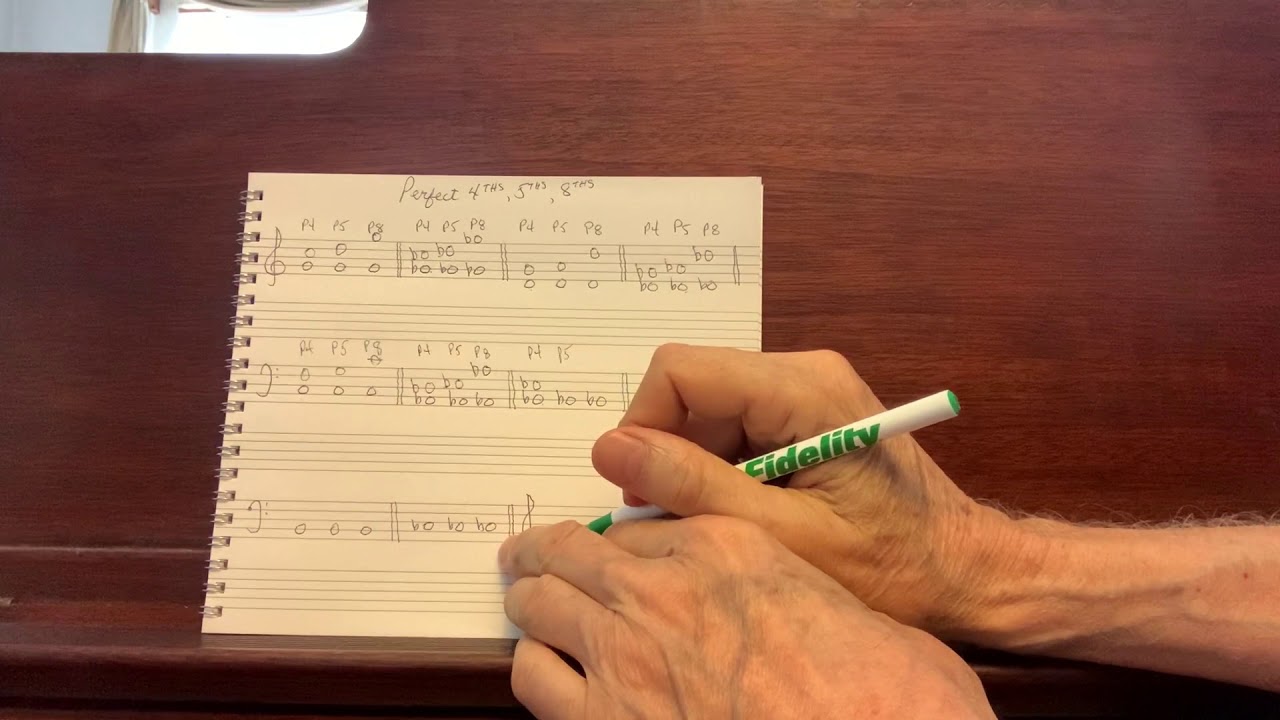 Perfect 4THS, 5THS, 8THS
P4 P5 P8 P4 P5 P8 P4 P5 P8 P4 P5 P8
P4 P5 P8 P4 P5 P8 P4 P5
Fidelity